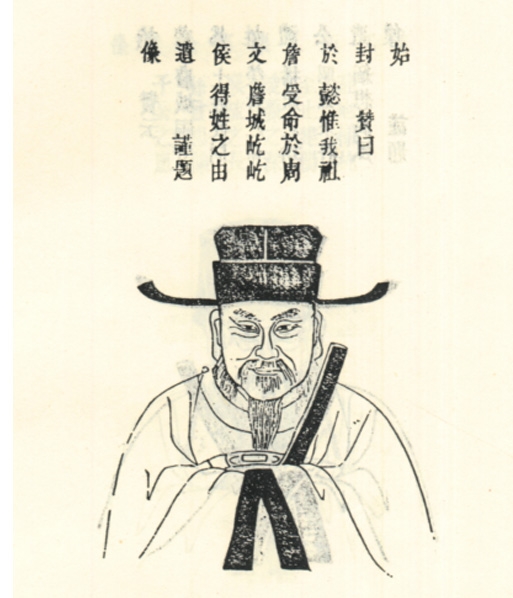 始
封 贊曰
於 懿惟我祖
詹 受命於周
文 詹城屹屹
侯 得姓之由
遺 謹題
像